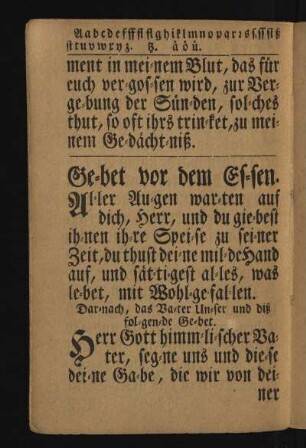 Aabcdefffflflghiklmnopqrısſ,ſſſiſtz
ſttuvwxyz. tz. åöů.
ment in mei⸗nem Blut, das für
euch ver⸗goſ⸗ſen wird, zur Ver⸗
ge⸗bung der Sün⸗den, ſol⸗ches
thut, ſo oft ihrs trin⸗ket, zu mei⸗
nem Ge⸗dächt⸗niß.
Ge⸗bet vor dem Eſ⸗ſen.
Al⸗ler Au⸗gen war⸗ten auf
dich, Herr, und du gie⸗beſt
ih⸗nen ih⸗re Spei⸗ſe zu ſei⸗ner
Zeit, du thuſt dei⸗ne mil⸗de Hand
auf, und ſåt⸗ti⸗geſt al⸗les, was
le⸗bet, mit Wohl⸗ge⸗fal⸗len.
Dar⸗nach, das Va⸗ter Un⸗ſer und diß
fol⸗gen⸗de Ge⸗bet.
Herr Gott himm⸗li⸗ſcher Va⸗
ter, ſeg⸗ne uns und die⸗ſe
dei⸗ne Ga⸗be, die wir von dei⸗
ner